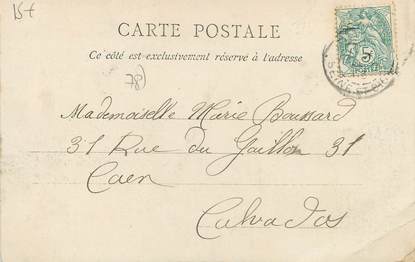 15f
CARTE POSTALE
Ce côté est exclusivement réservé à l'adresse
(78)
5
Mademoiselle Marie Boussard
31 Rue du Gaillon 31
Caen
Calvados